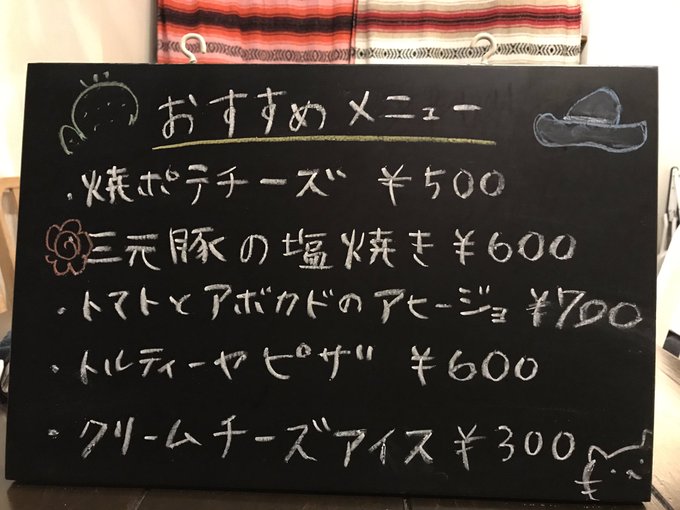 おすすめメニュー
・焼ポテチーズ ¥500
三元豚の塩焼き ¥600
・トマトとアボカドのアヒージョ ¥700
・トルティーヤピザ ¥600
・クリームチーズアイス ¥300